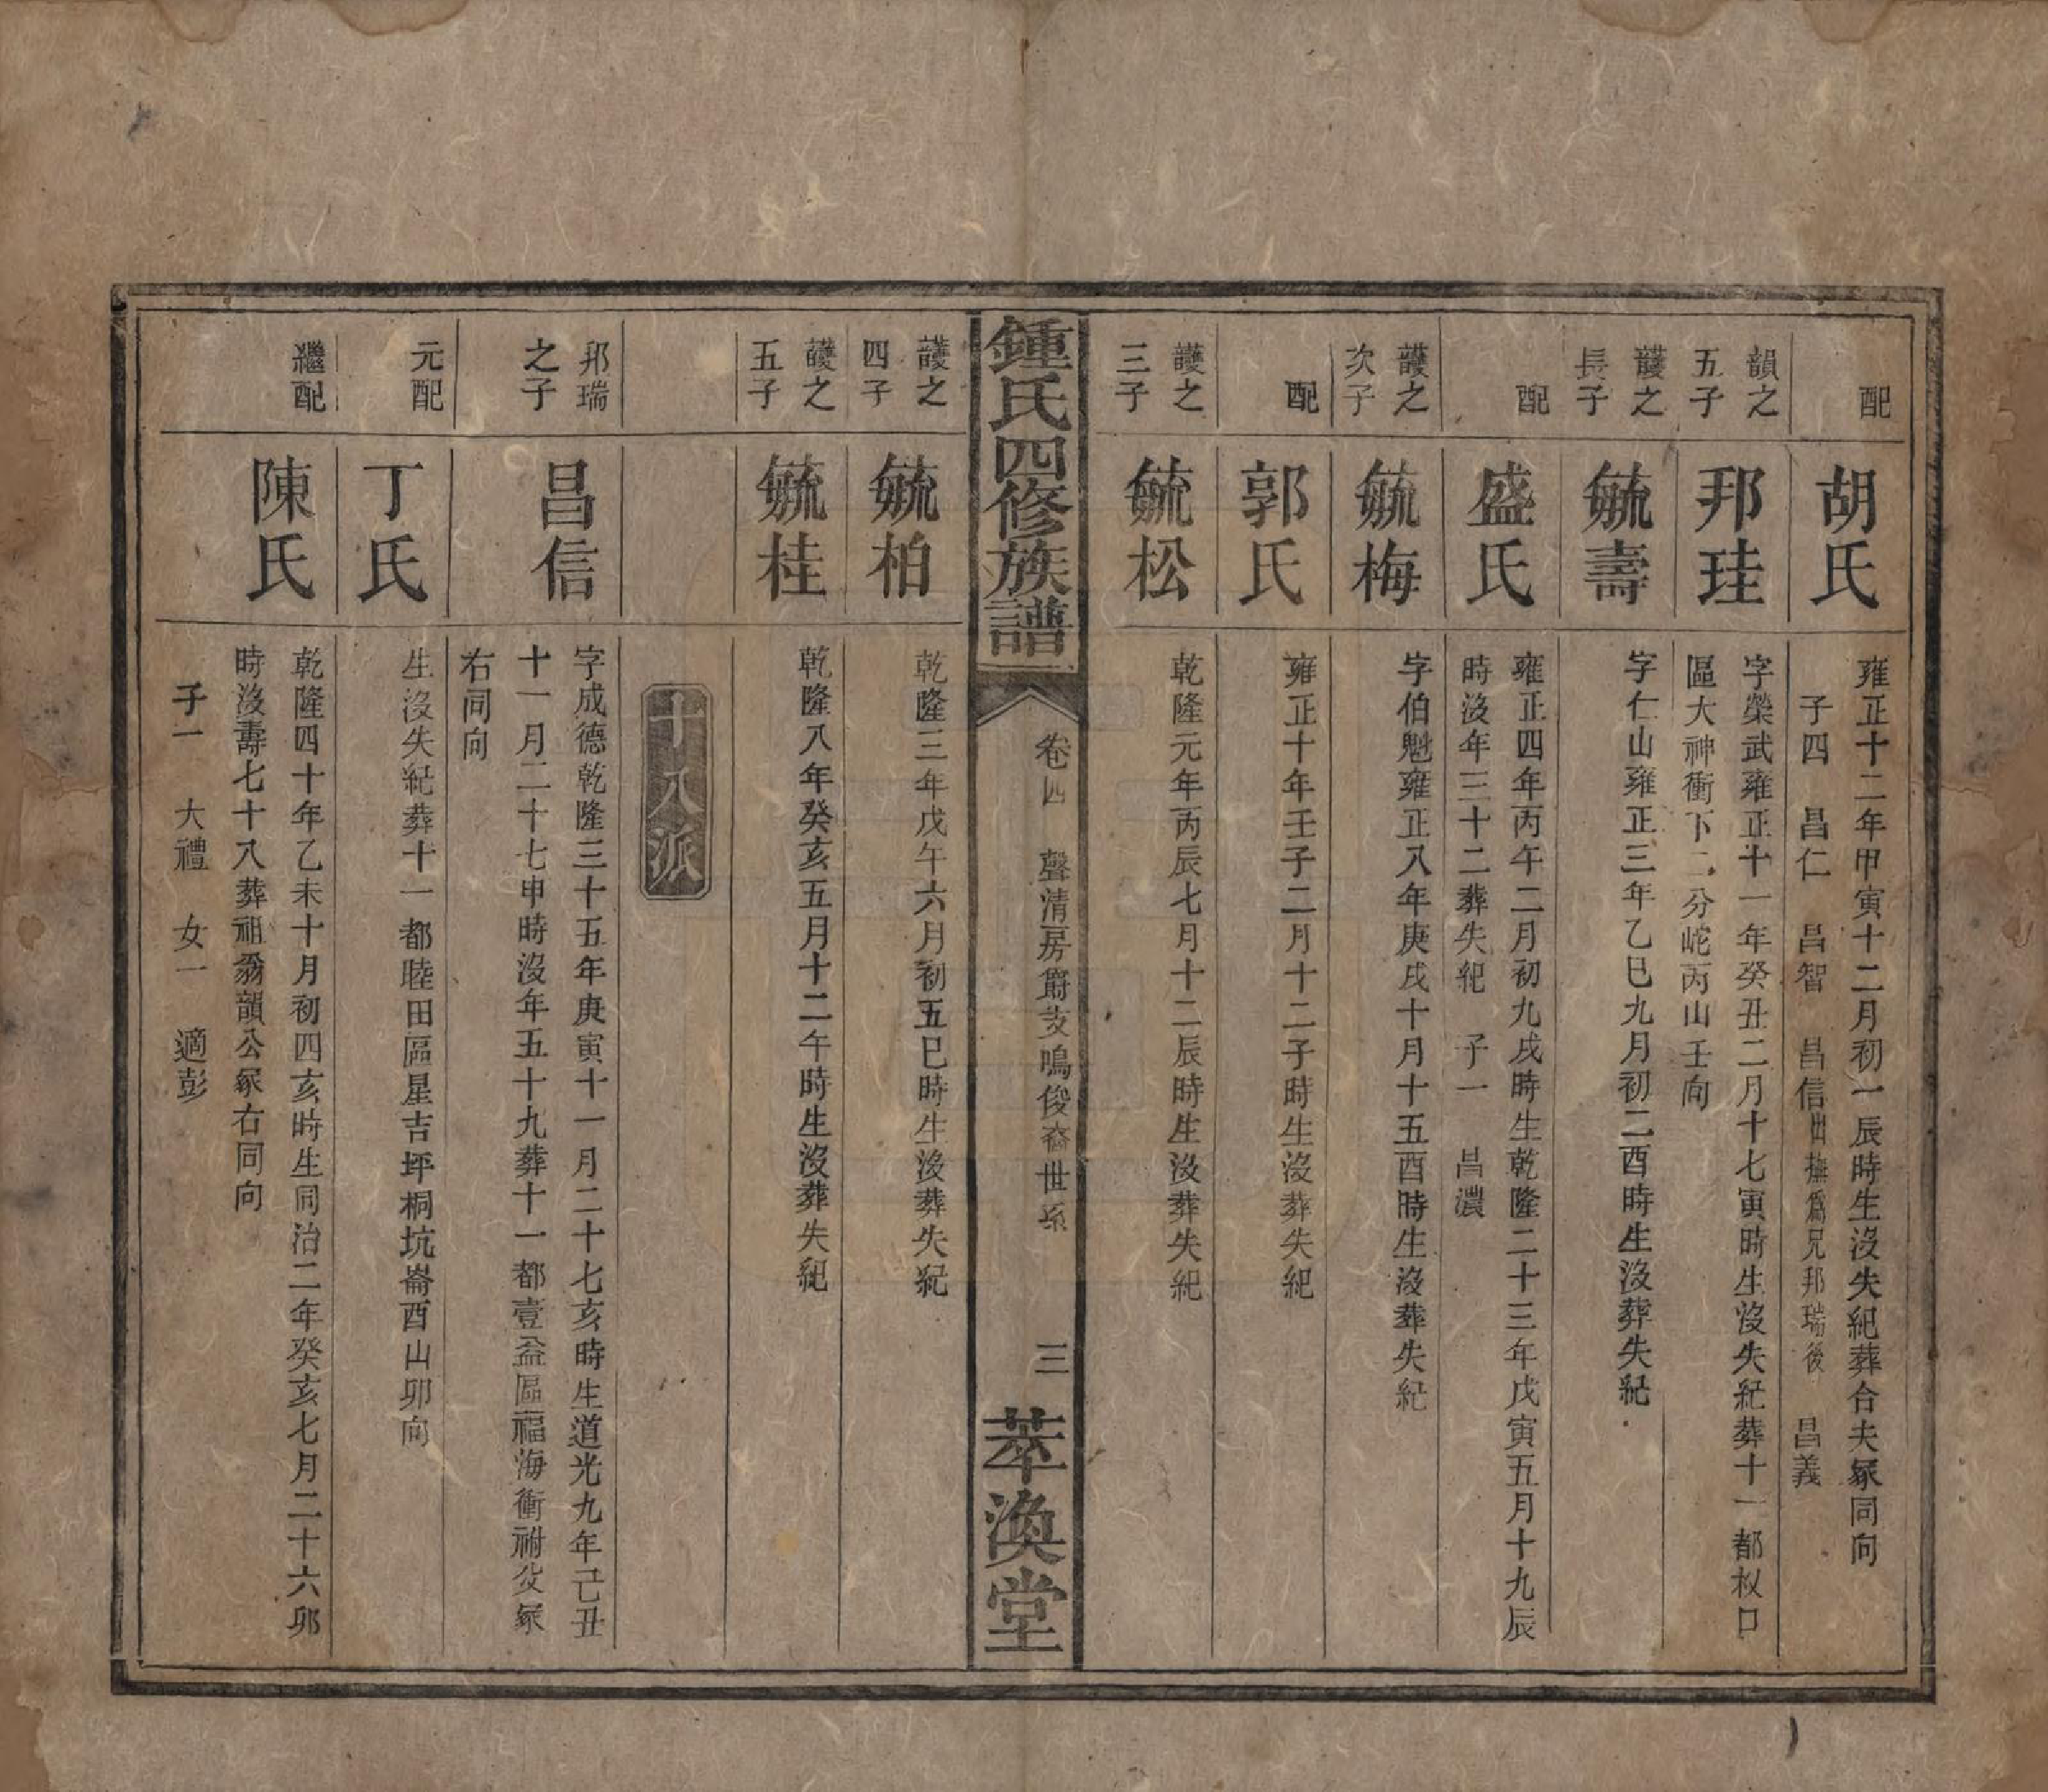 配
胡氏
雍正十二年甲寅十二月初一辰時生沒失紀葬合夫冢同向
子四 昌仁 昌智 昌信出撫為兄邦瑞後 昌義
韻之
五子
邦珪
字榮武雍正十一年癸丑二月十七寅時生沒失紀葬十一都杈口
區大神衝下二分𡶇丙山壬向
護之
長子
毓壽
字仁山雍正三年乙巳九月初二酉時生沒葬失紀
配
盛氏
雍正四年丙午二月初九戌時生乾隆二十三年戊寅五月十九辰
時沒年三十二葬失紀 子一 昌濃
護之
次子
毓梅
字伯魁雍正八年庚戌十月十五酉時生沒葬失紀
配
郭氏
雍正十年壬子二月十二子時生沒葬失紀
護之
三子
毓松
乾隆元年丙辰七月十二辰時生沒葬失紀
鍾氏四修族譜
卷四 聲清房爵支鳴俊裔世系
三
萃渙堂
護之
四子
毓柏
乾隆三年戊午六月初五巳時生沒葬失紀
護之
五子
毓桂
乾隆八年癸亥五月十二午時生沒葬失紀
十八派
邦瑞
之子
昌信
字成德乾隆三十五年庚寅十一月二十七亥時生道光九年己丑
十一月二十七申時沒年五十九葬十一都壹益區福海衝祔父冢
右同向
元配
丁氏
生沒失紀葬十一都睦田區星吉坪桐坑崙酉山卯向
繼配
陳氏
乾隆四十年乙未十月初四亥時生同治二年癸亥七月二十六卯
時沒壽七十八葬祖翁韻公冢右同向
子一 大禮 女一 適彭